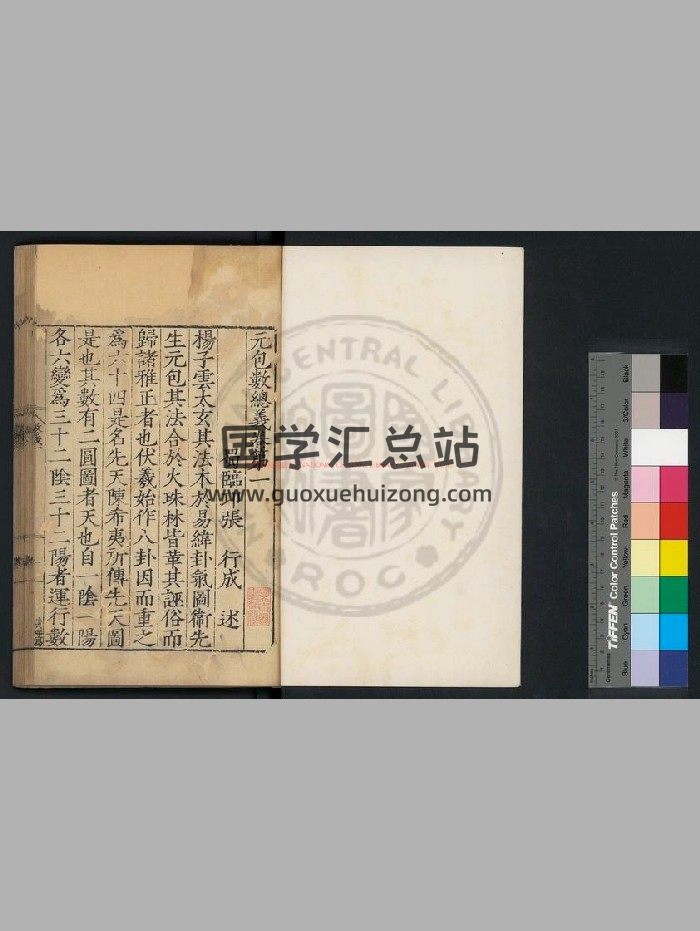 元包數總義卷第一
蜀臨卭張　行成　述
揚子雲太玄其法本於易緯卦氣圖衞先
生元包其法合於火珠林皆革其誣俗而
歸諸雅正者也伏羲始作八卦因而重之
爲六十四是名先天陳希夷所傳先天圖
是也其數有二圓圖者天也自一陰一陽
各六變爲三十二陰三十二陽者運行數
国学汇总站
www.guoxuehuizong.com
CENTRAL LIBRARY
ROC
Black
3/Color
White
Magenta
Red
Yellow
Green
Cyan
Blue
TIFFEN Color Control Patches